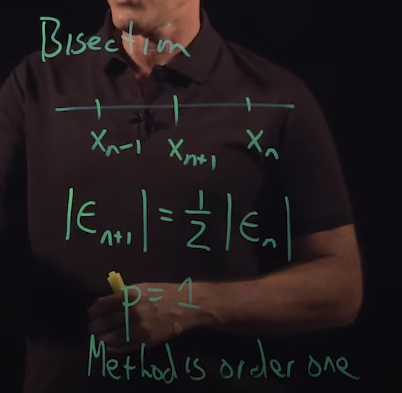 Bisection
x_{n-1} x_{n+1} x_n
|ϵ_{n+1}| = 1/2 |ϵ_n|
p = 1
Method is order one